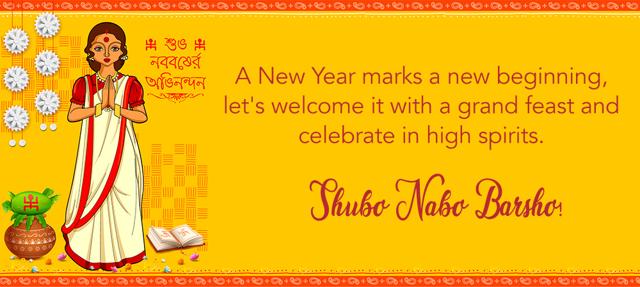 শুভ
নববর্ষের
অভিনন্দন
A New Year marks a new beginning,
let's welcome it with a grand feast and
celebrate in high spirits.
Shubo Nabo Barsho!